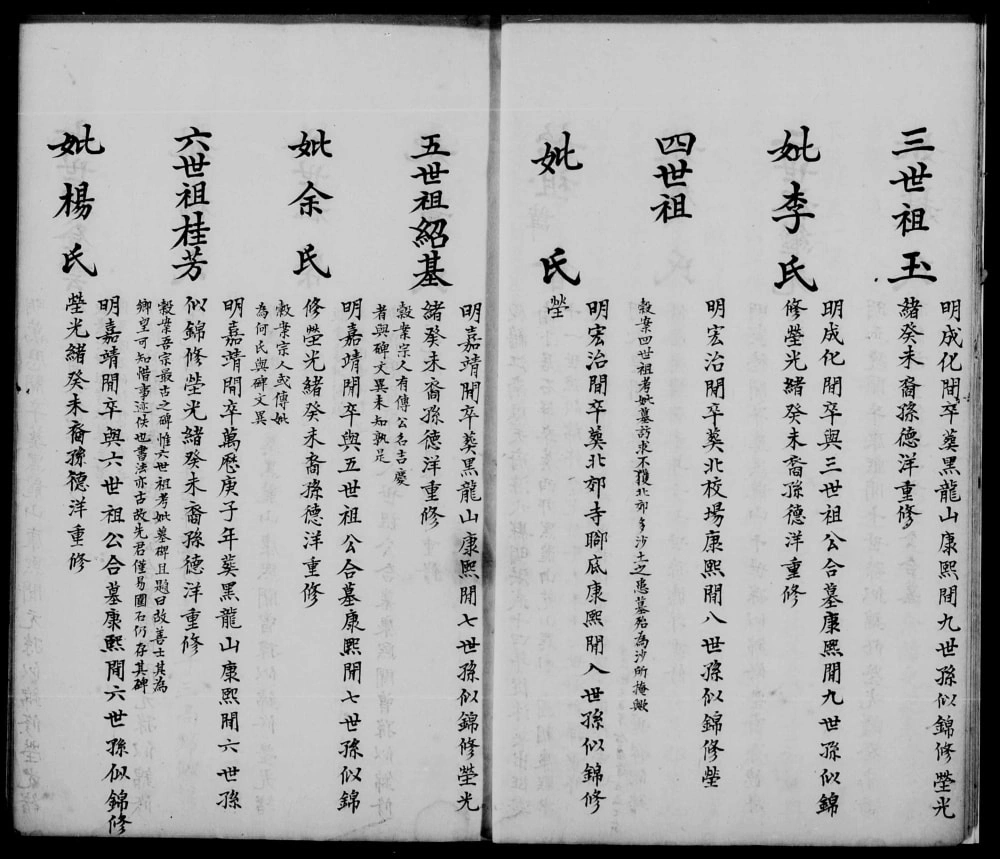 三世祖玉
明成化間卒葬黑龍山康熙間九世孫似錦修塋光
緒癸未裔孫德洋重修
妣李氏
明成化間卒與三世祖公合墓康熙間九世孫似錦
修塋光緒癸未裔孫德洋重修
四世祖
明宏治間卒葬北校場康熙間八世孫似錦修塋
穀案四世祖考妣墓訪求不獲北郊多沙土之患墓殆為沙所掩歟
妣 氏
明宏治間卒葬北郊寺腳底康熙間八世孫似錦修
塋
五世祖紹基
明嘉靖間卒葬黑龍山康熙間七世孫似錦修塋光
緒癸未裔孫德洋重修
穀案宗人有傳公名吉慶
者與碑文異未知孰是
妣余氏
明嘉靖間卒與五世祖公合墓康熙間七世孫似錦
修塋光緒癸未裔孫德洋重修
穀案宗人或傳妣
為何氏與碑文異
六世祖桂芳
明嘉靖間卒萬歷庚子年葬黑龍山康熙間六世孫
似錦修塋光緒癸未裔孫德洋重修
穀案吾宗最古之碑惟六世祖考妣墓碑且題曰故善士其為
鄉望可知惜事迹佚也書法亦古故先君僅易圍石仍存其碑
妣楊氏
明嘉靖間卒與六世祖公合墓康熙間六世孫似錦修
塋光緒癸未裔孫德洋重修